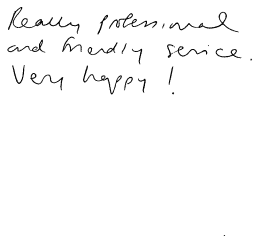 Really professional
and friendly service.
Very happy !